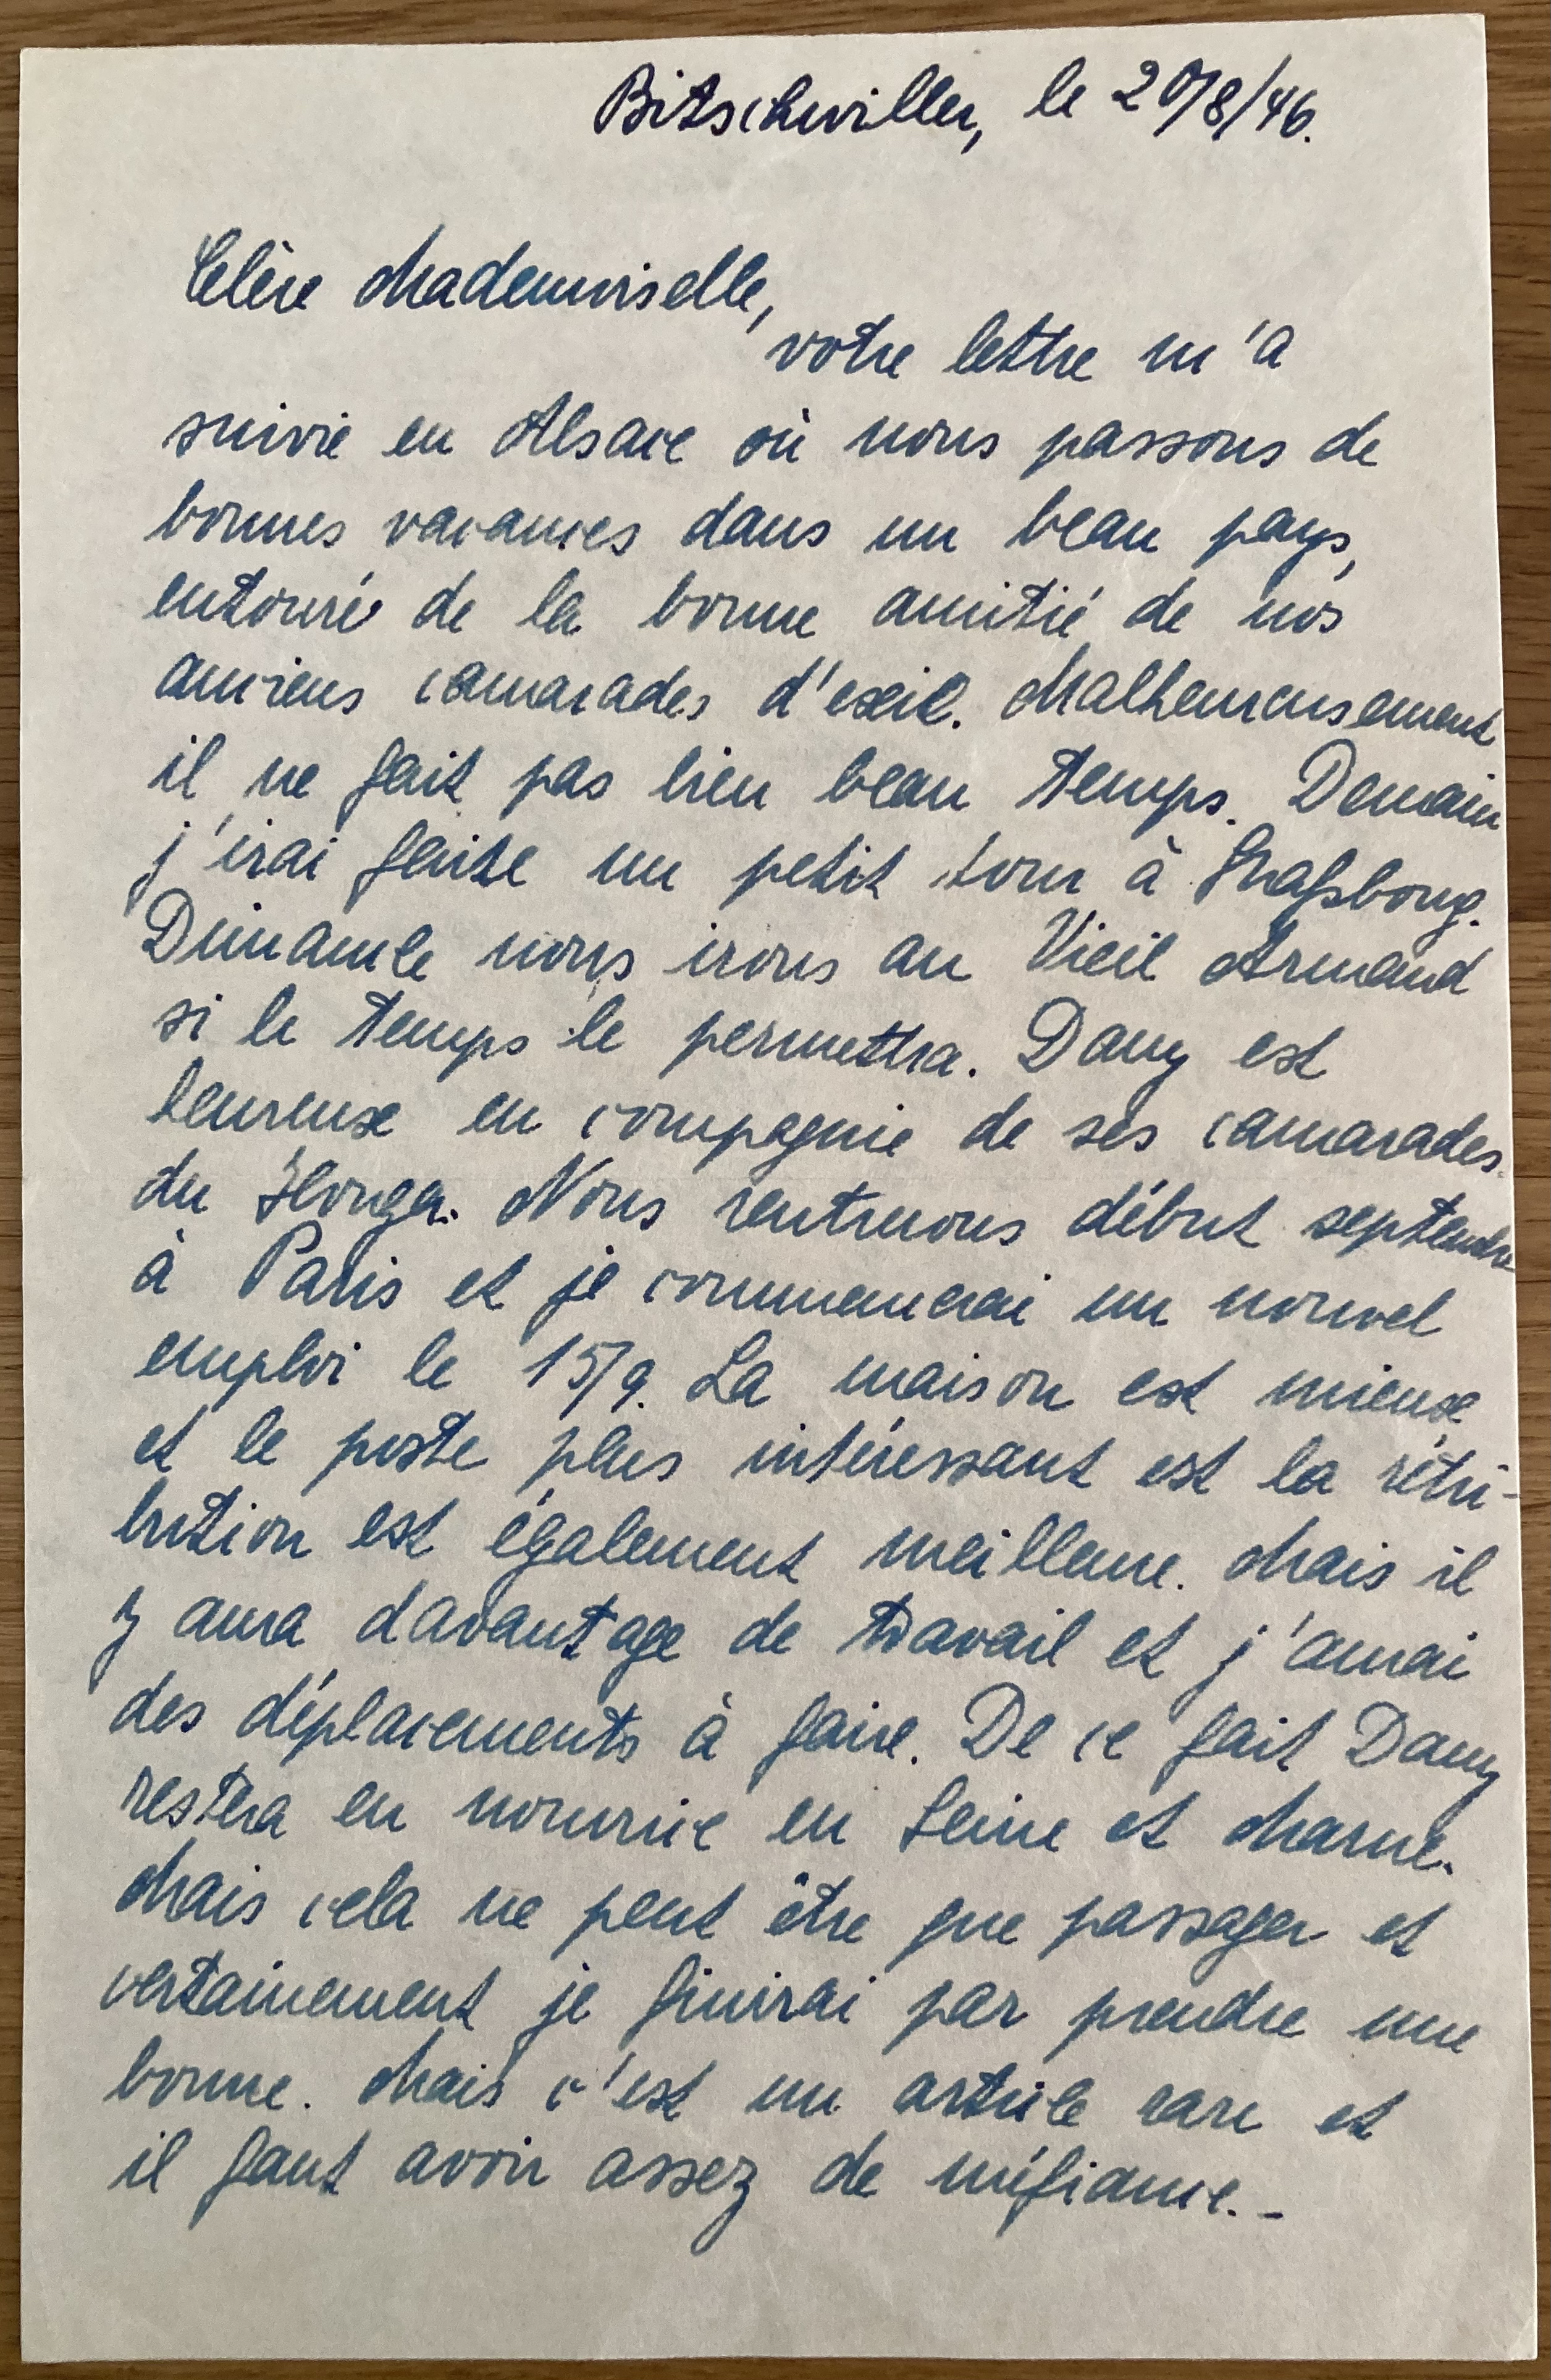 Bitschwiller, le 20/8/46.
Chère Mademoiselle,
votre lettre m'a
suivie en Alsace où nous passons de
bonnes vacances dans un beau pays,
entouré de la bonne amitié de nos
anciens camarades d'exil. Malheureusement
il ne fait pas bien beau temps. Demain
j'irai faire un petit tour à Straßbourg.
Dimanche nous irons au Vieil Armand
si le temps le permettra. Dany est
heureuse en compagnie de ses camarades
du Houga. Nous rentrerons début septembre
à Paris et je commencerai un nouvel
emploi le 15/9. La maison est mieux
et le poste plus intéressant est la rétri-
bution est également meilleure. Mais il
y aura davantage de travail et j'aurai
des déplacements à faire. De ce fait Dany
restera en nourrice en Seine et Marne.
Mais cela ne peut être que passager et
certainement je finirai par prendre une
bonne. Mais c'est un article rare et
il faut avoir assez de méfiance.-